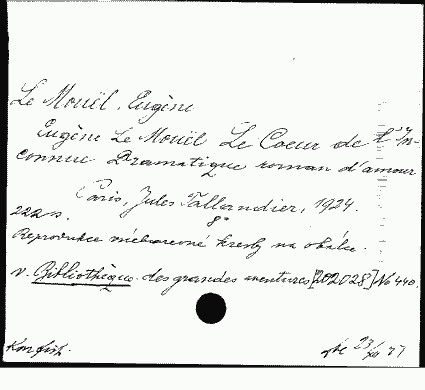 Le Mouël, Eugène
Eugène Le Mouël Le Coeur de l'In-
connue Dramatique roman d'amour
Paris, Jules Tallandier, 1924.
222 s. 8°
Reprodukce kresby na obálce.
v. Bibliothèque des grandes aventures [202028] No 440.
Konfisk.
23/XI 37